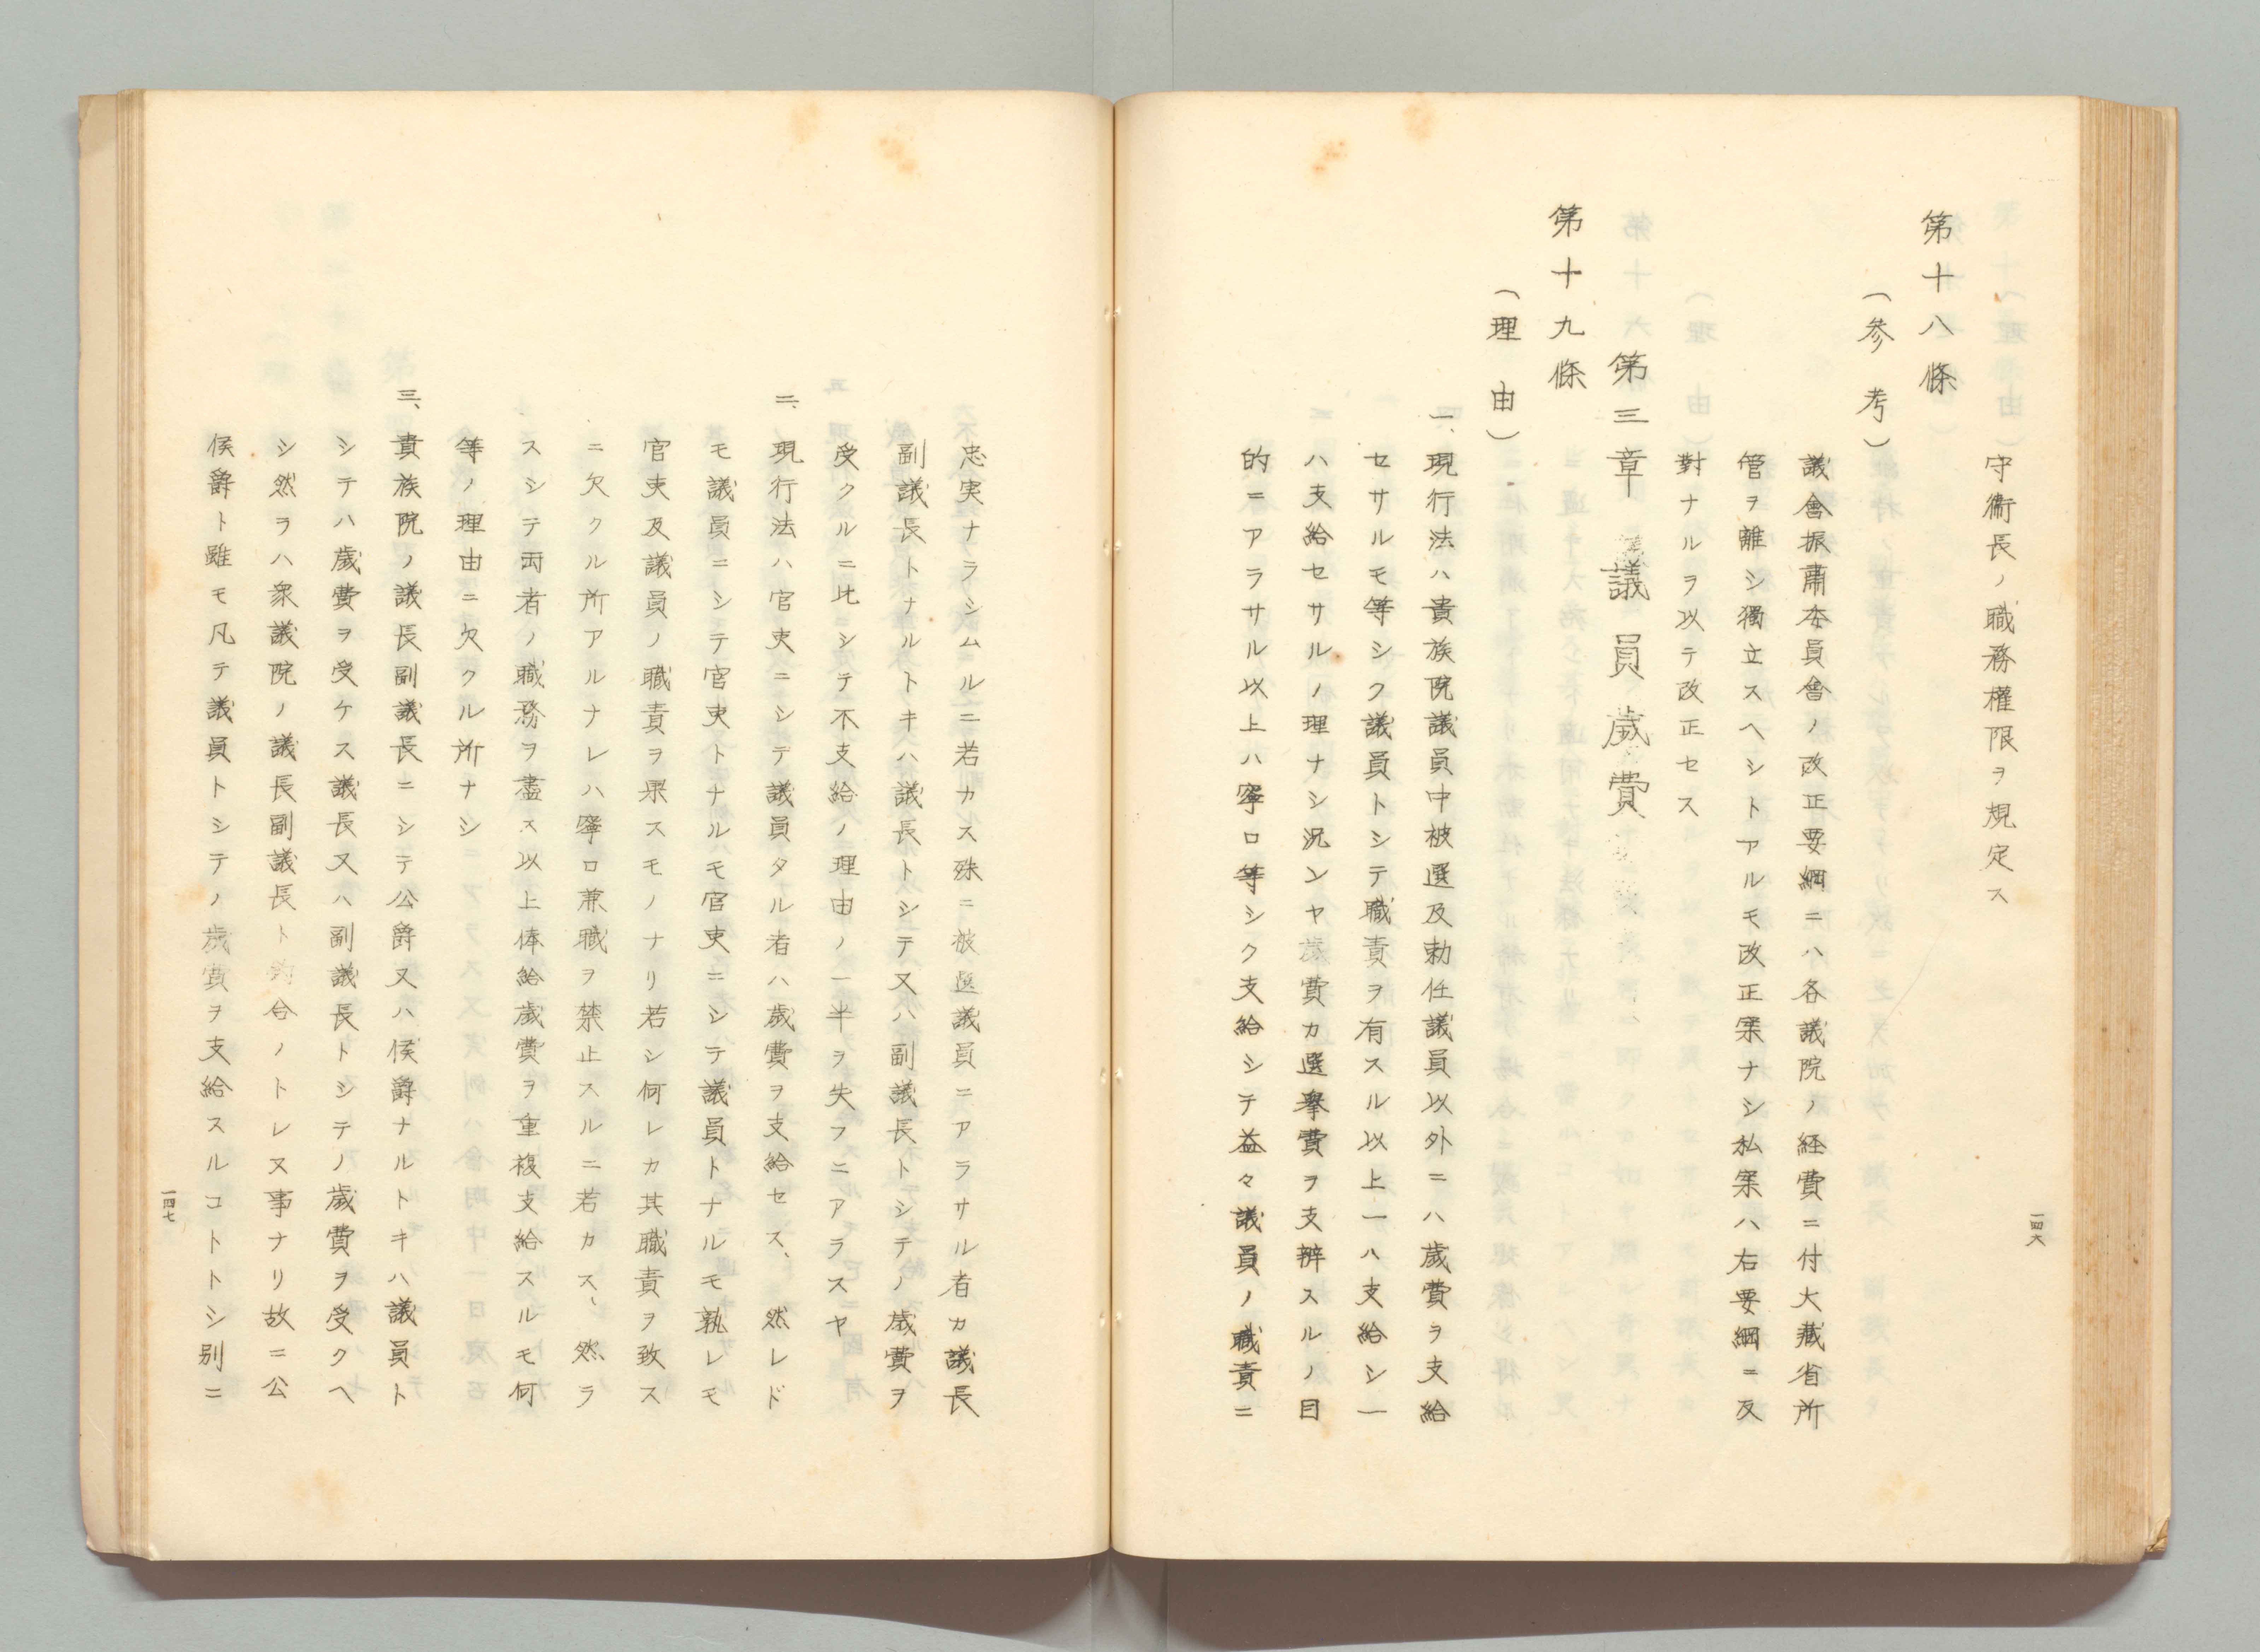 守衞長ノ職務權限ヲ規定ス
第十八條
(參考)
議會振肅委員會ノ改正要綱ニハ各議院ノ経費ニ付大藏省所
管ヲ離シ獨立スヘシトアルモ改正案ナシ私案ハ右要綱ニ反
對ナルヲ以テ改正セス
第三章 議員歲費
第十九條
(理由)
一、現行法ハ貴族院議員中被選及勅任議員以外ニハ歲費ヲ支給
セサルモ等シク議員トシテ職責ヲ有スル以上一ハ支給シ一
ハ支給セサルノ理ナシ況ンヤ歲費カ選擧費ヲ支辨スルノ目
的ニアラサル以上ハ寧ロ等シク支給シテ益々議員ノ職責ニ
一四六
忠実ナラシムルニ若カス殊ニ被選議員ニアラサル者カ議長
副議長トナルトキハ議長トシテ又ハ副議長トシテノ歲費ヲ
受クルニ比シテ不支給ノ理由ノ一半ヲ失フニアラスヤ
二、現行法ハ官吏ニシテ議員タル者ハ歲費ヲ支給セス、然レド
モ議員ニシテ官吏トナルモ官吏ニシテ議員トナルモ孰レモ
官吏及議員ノ職責ヲ果スモノナリ若シ何レカ其職責ヲ致ス
ニ欠クル所アルナレハ寧ロ兼職ヲ禁止スルニ若カス、然ラ
スシテ両者ノ職務ヲ盡ス以上俸給歲費ヲ重複支給スルモ何
等ノ理由ニ欠クル所ナシ
三、貴族院ノ議長副議長ニシテ公爵又ハ侯爵ナルトキハ議員ト
シテハ歲費ヲ受ケス議長又ハ副議長トシテノ歲費ヲ受クヘ
シ然ラハ衆議院ノ議長副議長ト釣合ノトレヌ事ナリ故ニ公
侯爵ト雖モ凡テ議員トシテノ歲費ヲ支給スルコトトシ別ニ
一四七